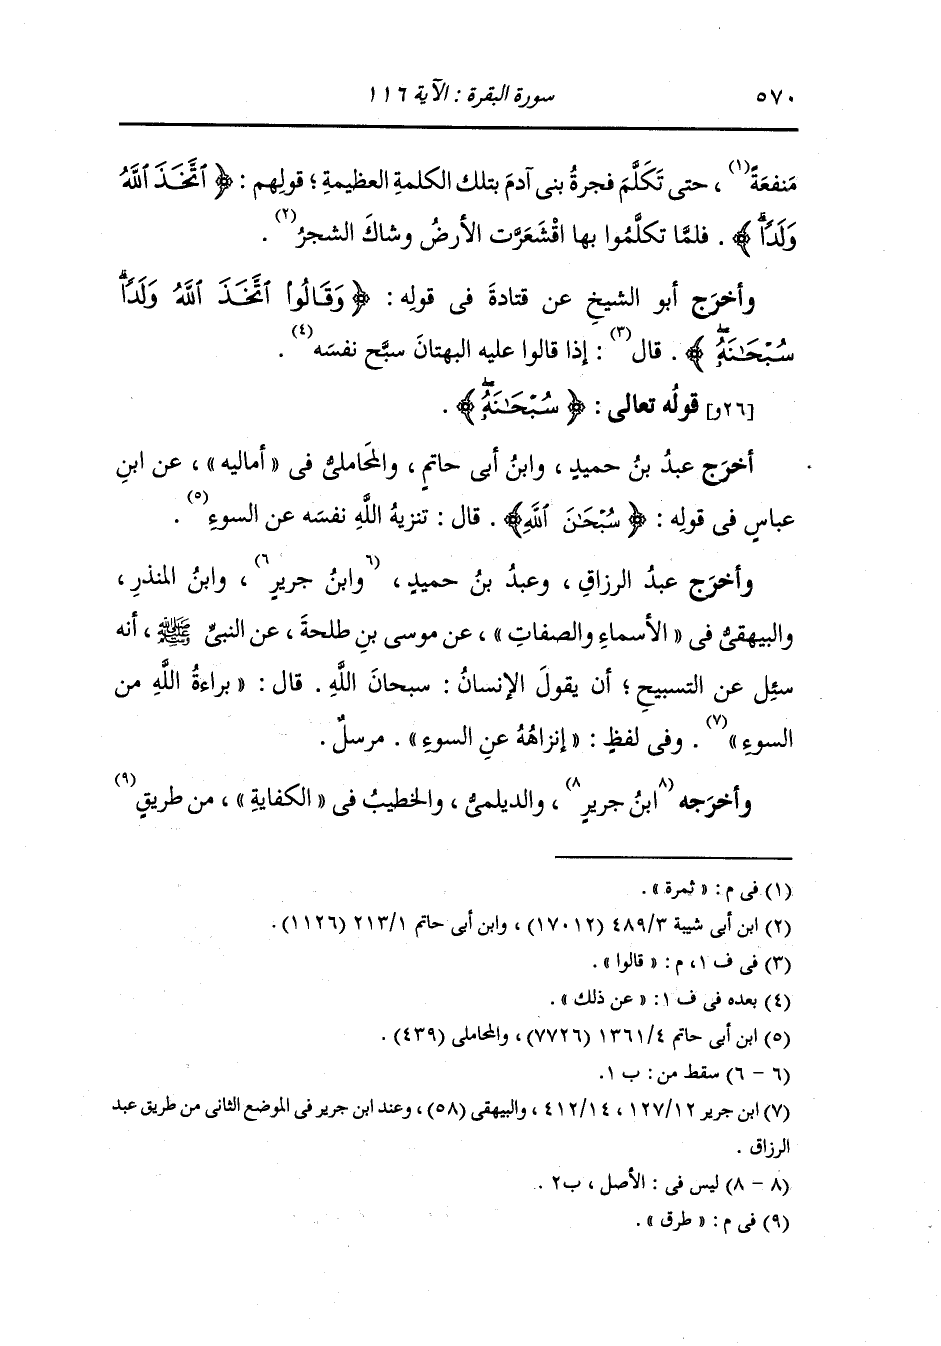 ٥٧٠ سورة البقرة : الآية ١١٦
مَنفعَةً(١) ، حتى تَكَلَّمَ فجرةُ بنى آدمَ بتلك الكلمةِ العظيمةِ ؛ قولِهم : ﴿ ٱتَّخَذَ ٱللَّهُ
وَلَدًاۗ ﴾ . فلمَّا تكلَّمُوا بها اقْشَعَرَّت الأرضُ وشاكَ الشجرُ(٢) .
وأخرَج أبو الشيخِ عن قتادةَ فى قولِه : ﴿ وَقَالُوا۟ ٱتَّخَذَ ٱللَّهُ وَلَدًاۗ
سُبْحَـٰنَهُۥۖ ﴾ . قال(٣) : إذا قالوا عليه البهتانَ سبَّح نفسَه(٤) .
[٢٦و] قولُه تعالى : ﴿ سُبْحَـٰنَهُۥۖ ﴾ .
أخرَج عبدُ بنُ حميدٍ ، وابنُ أبى حاتمٍ ، والمَحَاملىُّ فى « أماليه » ، عن ابنِ
عباسٍ فى قولِه : ﴿ سُبْحَـٰنَ ٱللَّهِ ﴾ . قال : تنزيهُ اللَّهِ نفسَه عن السوءِ(٥) .
وأخرَج عبدُ الرزاقِ ، وعبدُ بنُ حميدٍ ، (٦وابنُ جريرٍ٦) ، وابنُ المنذرِ ،
والبيهقىُّ فى « الأسماءِ والصفاتِ » ، عن موسى بنِ طلحةَ ، عن النبىِّ ﷺ ، أنه
سئِل عن التسبيحِ ؛ أن يقولَ الإنسانُ : سبحانَ اللَّهِ . قال : « براءةُ اللَّهِ من
السوءِ »(٧) . وفى لفظٍ : « إنزاهُهُ عنِ السوءِ » . مرسلٌ .
وأخرَجه (٨ابنُ جريرٍ٨) ، والديلمىُّ ، والخطيبُ فى « الكفايةِ » ، من طريقٍ(٩)
(١) فى م : « ثمرة » .
(٢) ابن أبى شيبة ٤٨٩/٣ (١٧٠١٢) ، وابن أبى حاتم ٢١٣/١ (١١٢٦) .
(٣) فى ف ١، م : « قالوا » .
(٤) بعده فى ف ١: « عن ذلك » .
(٥) ابن أبى حاتم ١٣٦١/٤ (٧٧٢٦) ، والمحاملى (٤٣٩) .
(٦ - ٦) سقط من : ب ١.
(٧) ابن جرير ١٢٧/١٢ ، ٤١٢/١٤ ، والبيهقى (٥٨) ، وعند ابن جرير فى الموضع الثانى من طريق عبد
الرزاق .
(٨ - ٨) ليس فى : الأصل ، ب٢ .
(٩) فى م : « طرق » .